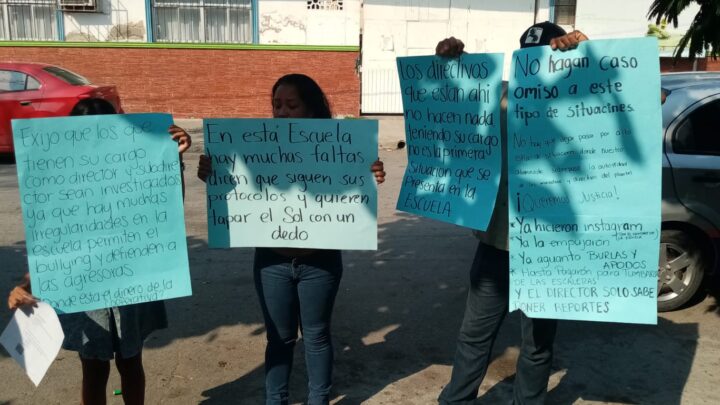 Exijo que los que
tienen su cargo
como director y subdirec
tor sean investigados
ya que hay muchas
irregularidades en la
escuela permiten el
bullying y defienden a
las agresoras
Donde esta el dinero de la
cooperativa?
En está Escuela
hay muchas faltas
dicen que siguen sus
protocolos y quieren
tapar el Sol con un
dedo
Los directivos
que estan ahi
no hacen nada
teniendo su cargo
no es la primera
situacion que se
presenta en la
ESCUELA
No hagan caso
omiso a este
tipo de situaciones.
No hay que dejar pasar por alto
esta situacion donde nuestra
alumnado
¡Queremos Justicia!
* Ya hicieron instagram
* Ya la empujaron
* Ya aguanto BURLAS y
APODOS
* Hasta Pagaron para TUMBARLA
DE LAS ESCALERAS
* Y EL DIRECTOR SOLO SABE
PONER REPORTES